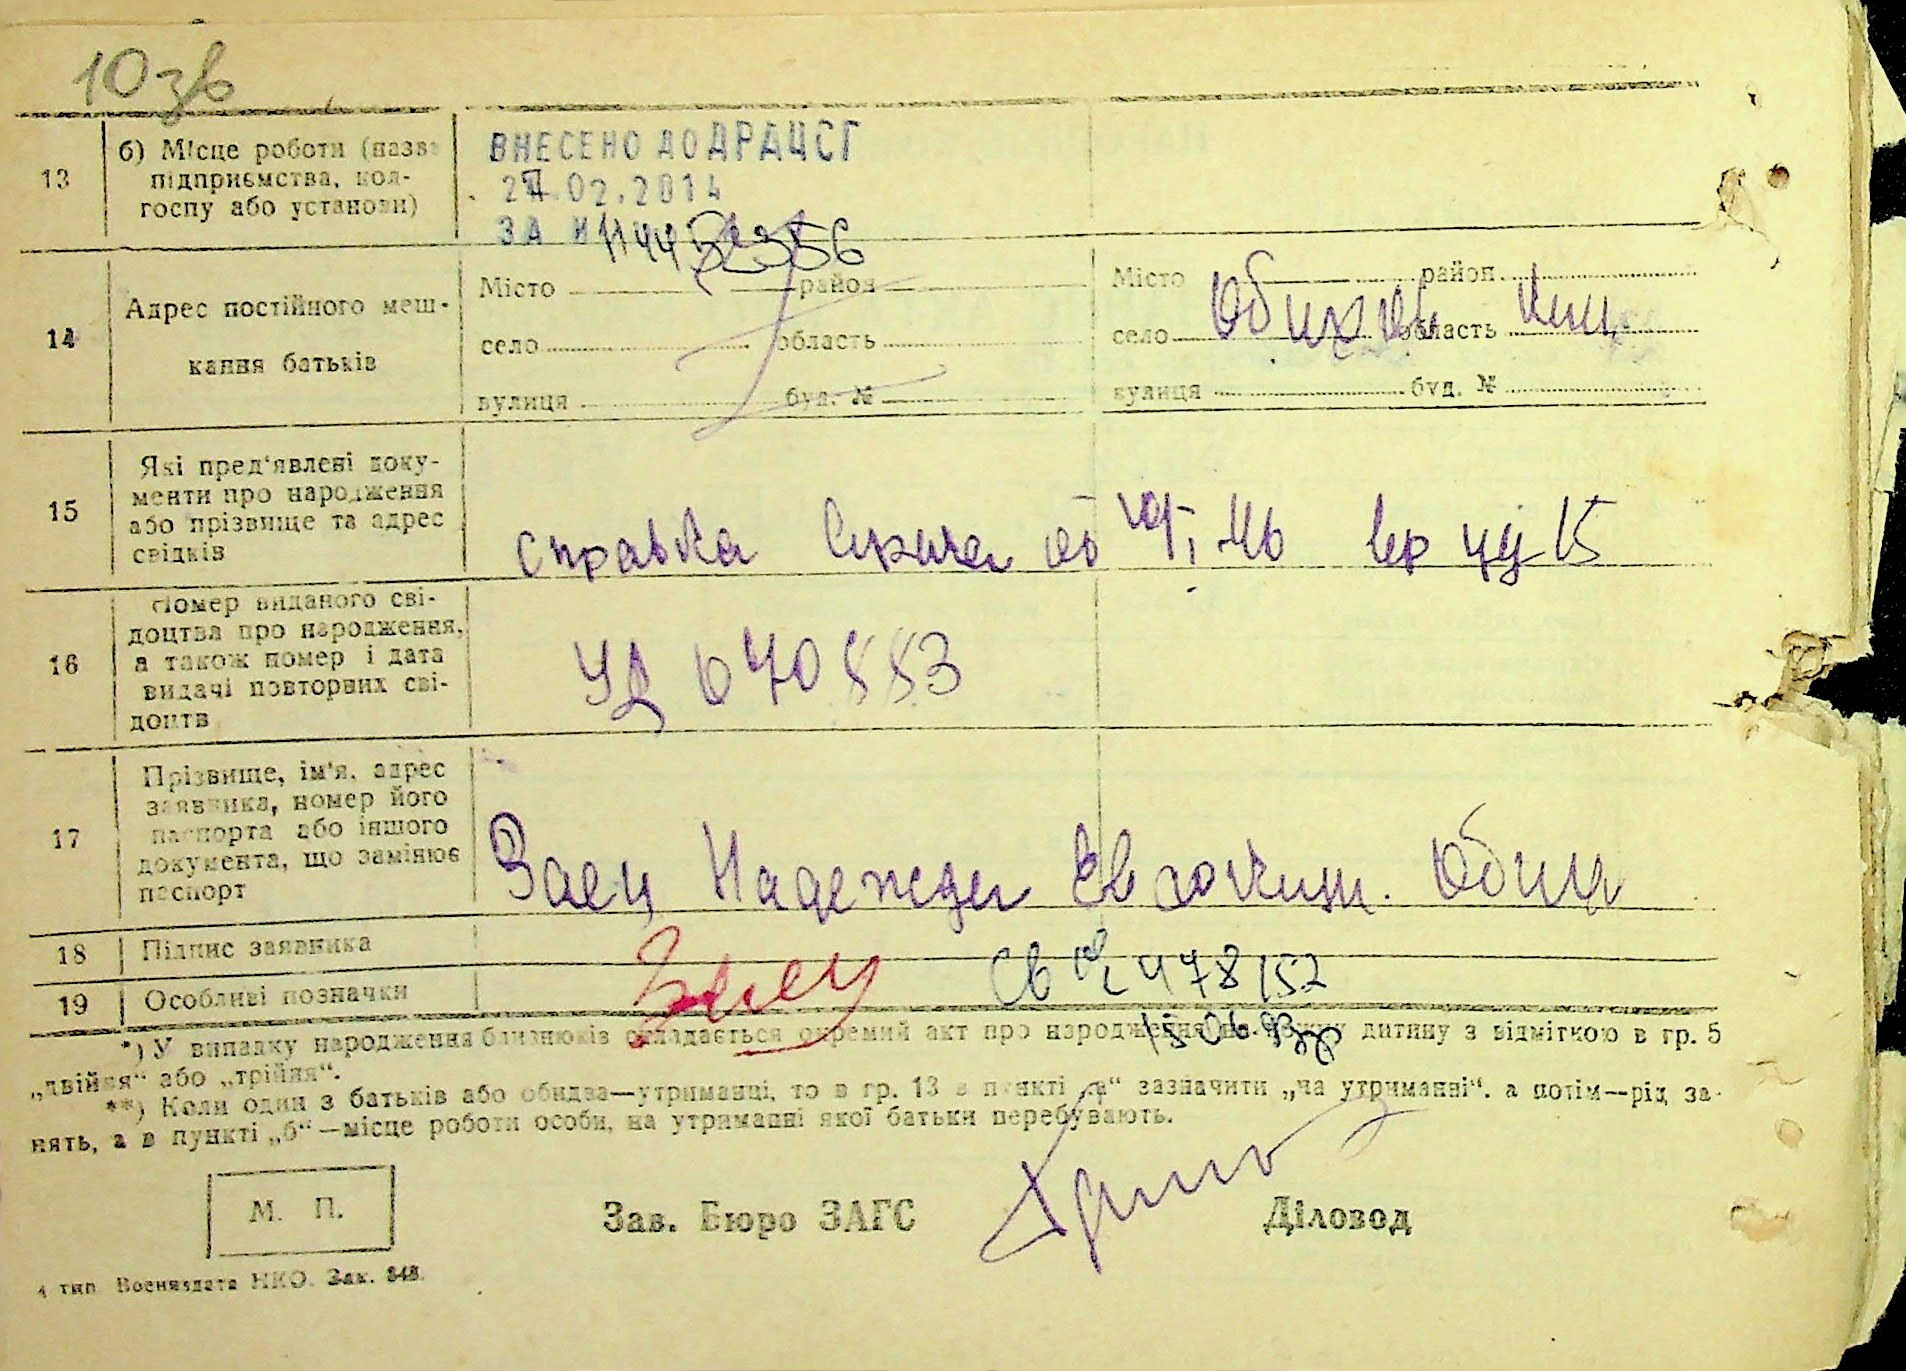 10зв
13
б) Місце роботи (назва
підприємства, кол-
госпу або установи)
ВНЕСЕНО ДО ДРАЦСГ
02.2014
ЗА №
14
Адрес постійного меш-
кання батьків
Місто район
село область
вулиця буд. №
Місто район
село область
вулиця буд. №
15
Які пред'явлені доку-
менти про народження
або прізвище та адрес
свідків
справка
16
Номер виданого сві-
доцтва про народження,
а також номер і дата
видачі повторних сві-
доцтв
УД 070883
17
Прізвище, ім'я, адрес
заявника, номер його
паспорта або іншого
документа, що замінює
паспорт
Заец Надежда
18
Підпис заявника
Заец
19
Особливі позначки
*) У випадку народження близнюків складається окремий акт про народження на кожну дитину з відміткою в гр. 5
„двійня“ або „трійня“.
**) Коли один з батьків або обидва—утриманці, то в гр. 13 в пункті „а“ зазначити „на утриманні“, а потім—рід за-
нять, а в пункті „б“—місце роботи особи, на утриманні якої батьки перебувають.
М. П.
Зав. Бюро ЗАГС Діловод
4 тип. Воениздата НКО. Зак. 848.